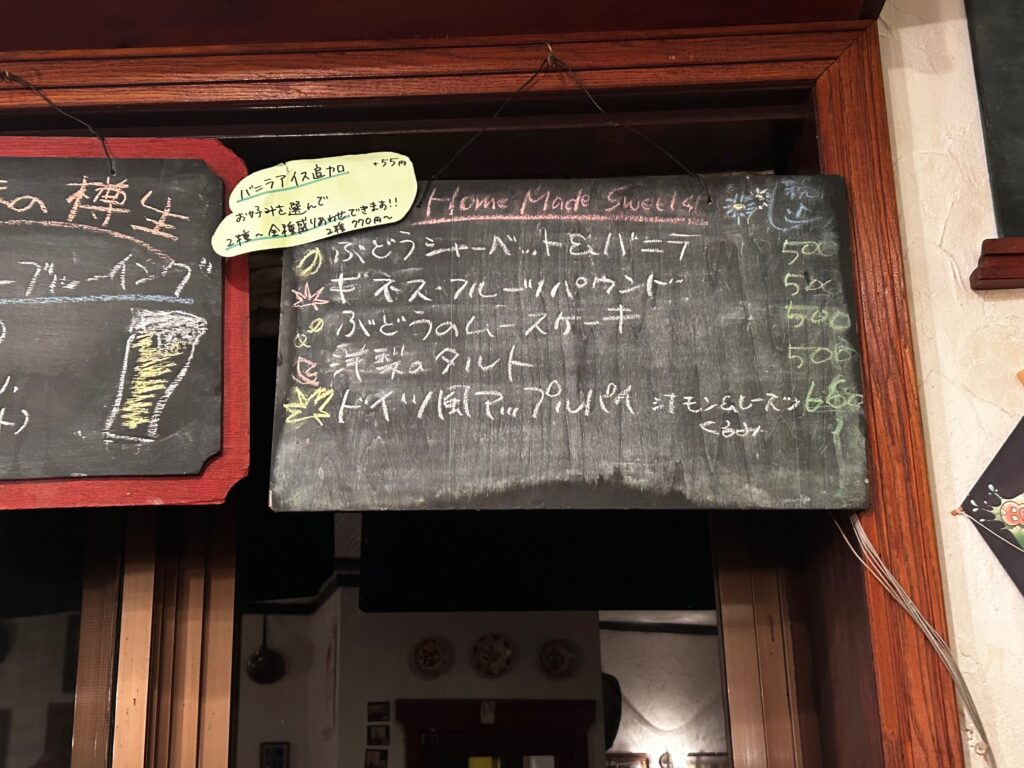 の樽生
ーブルーイング
ト)
バニラアイス追加 +55円
お好みを選んで
2種〜全種盛りあわせできます!!
2種 770円〜
Home Made Sweets! 税込
ぶどうシャーベット&バニラ 500
ギネス・フルーツパウンド 500
ぶどうのムースケーキ 500
洋梨のタルト 500
ドイツ風アップルパイ シナモン レーズン 660
くるみ